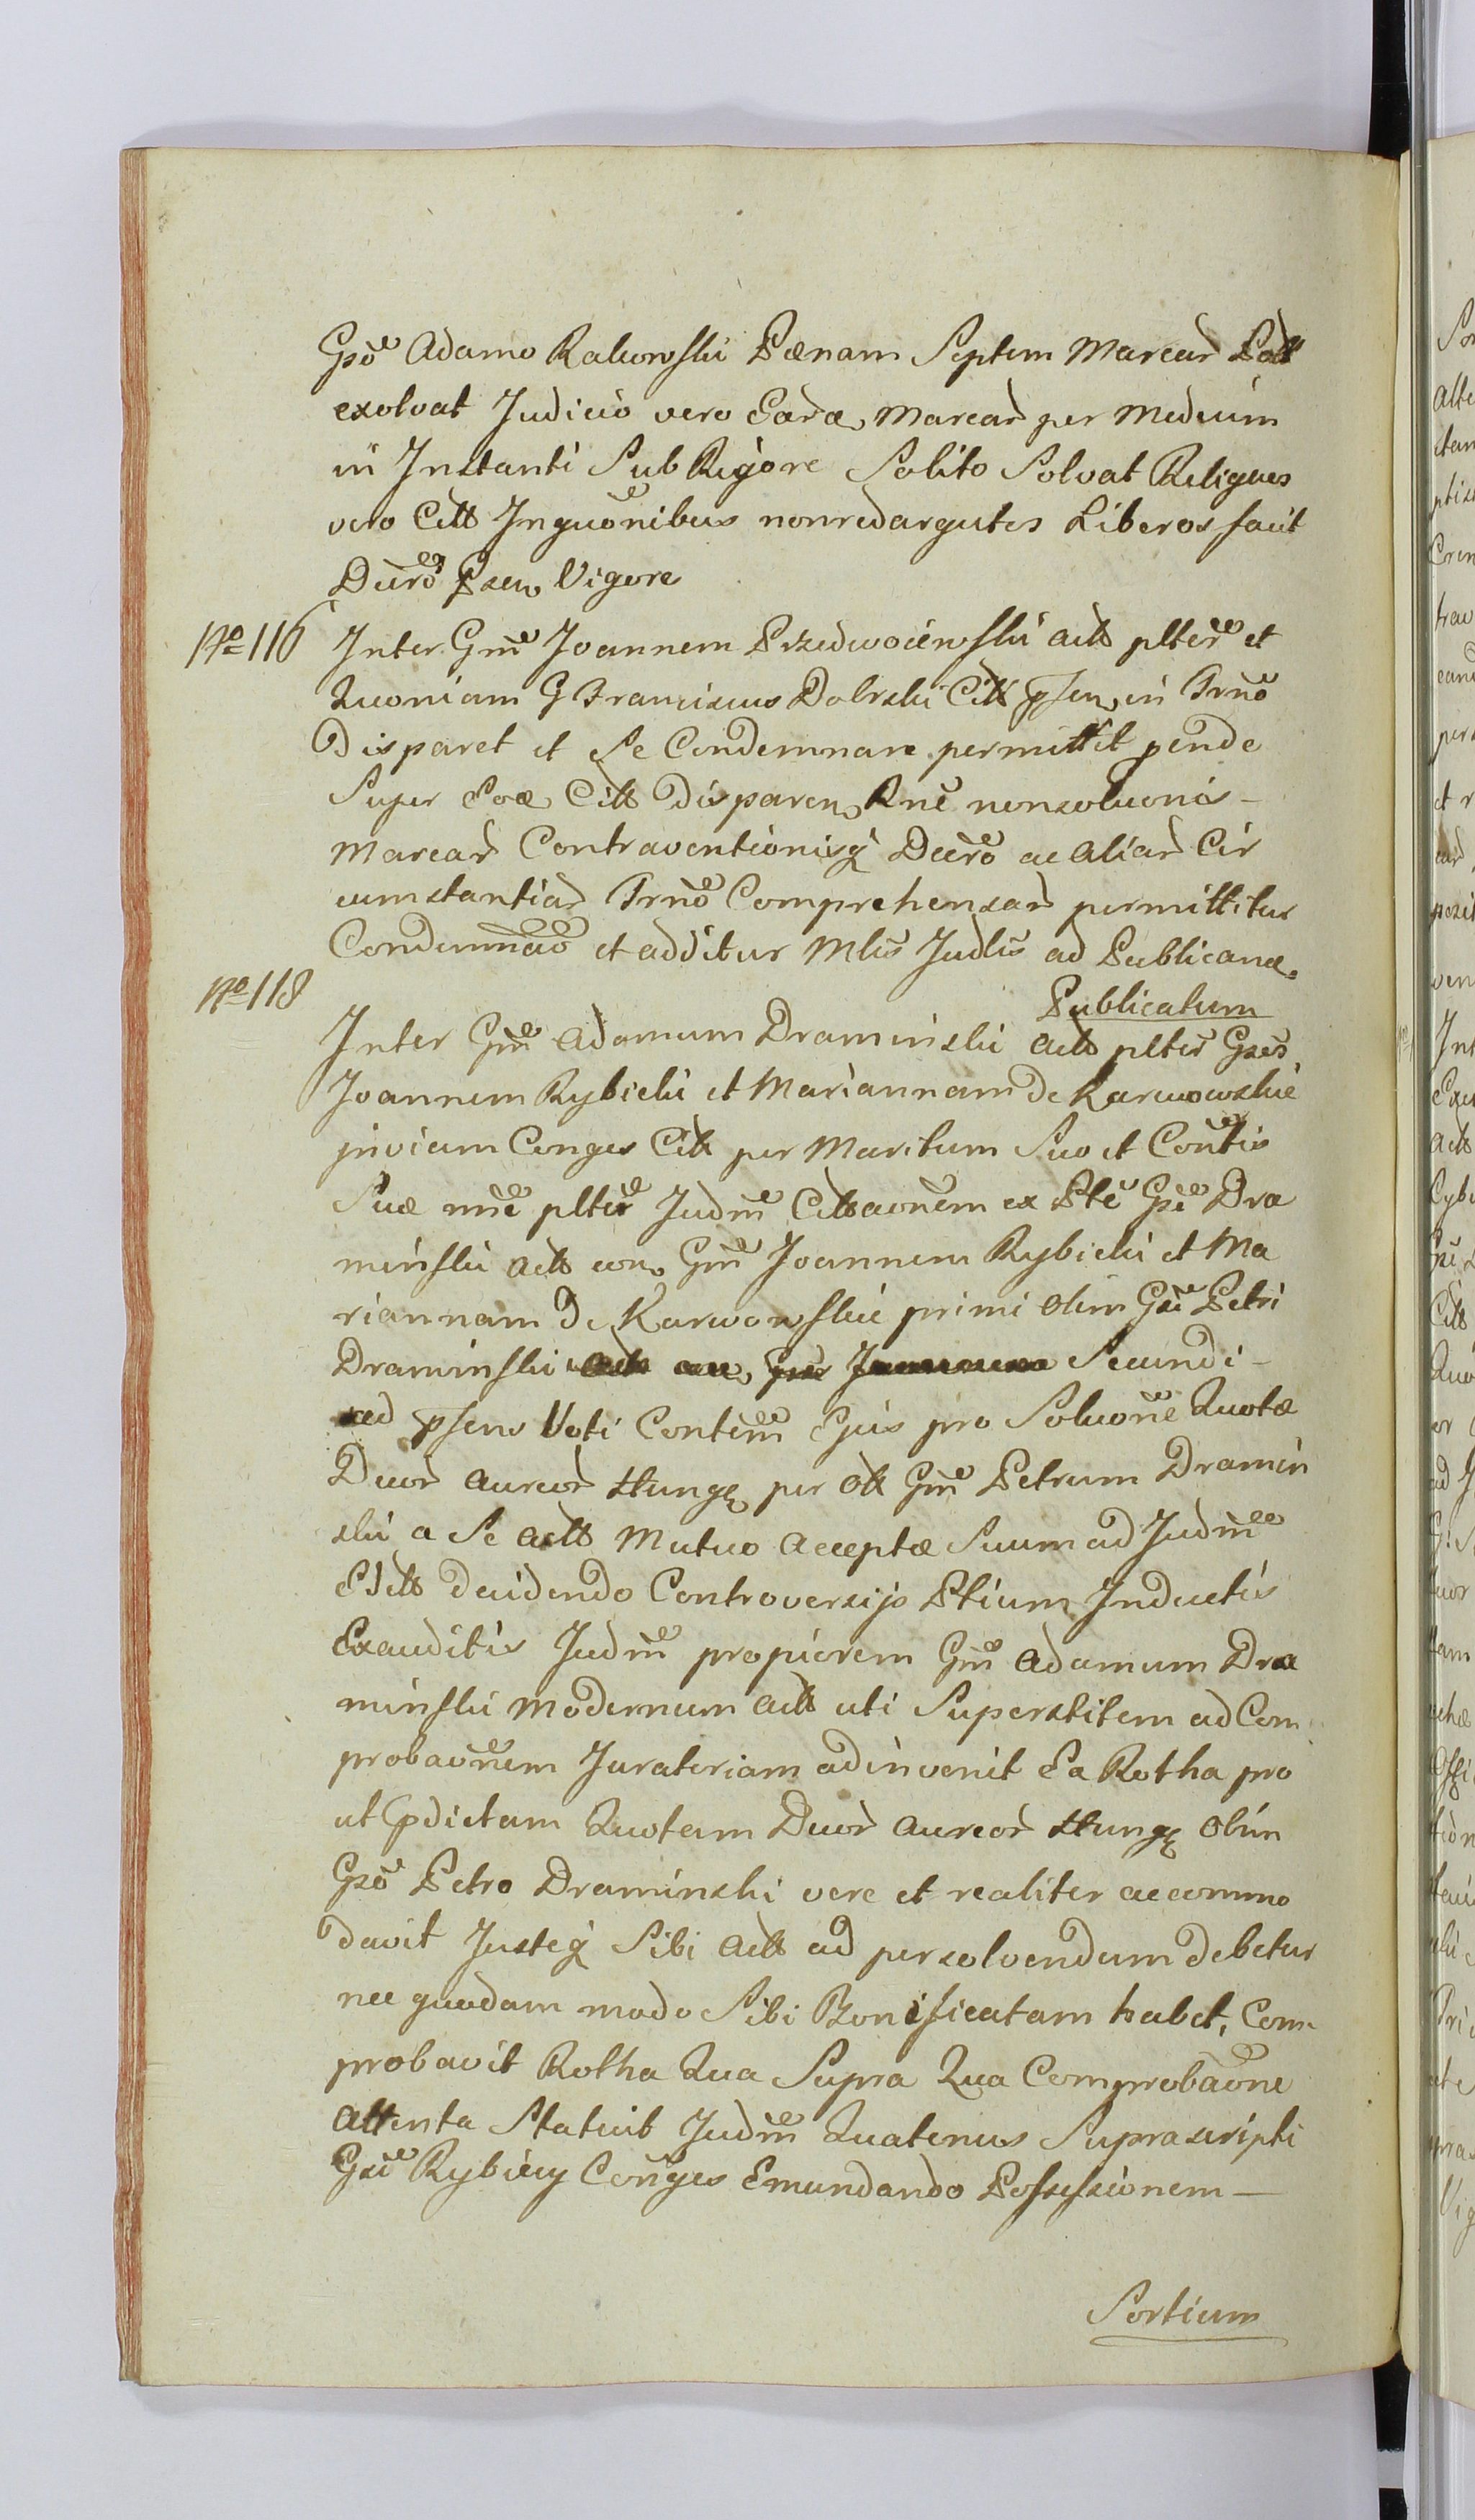 Gsõ Adamo Rakowski Pænam Septem Marcar̃ Poll
exolvat Judicio vero Eard Marcar̃ per Medium
in Instanti Sub Rigore Solito Solvat Reliquos
vero Citt Inquõnibus nonredargutos Liberos facit
Decrõ Psen Vigore
Nº 116
Inter Gm̃ Joannem Przedwoiewski Actt pltẽr et
Quoniam G Franciscus Dobrski Citt psen in Trnõ
Disparet et Se Condemnare permittit pende
Super Eoã Citt Disparen Rnẽ nonsoluonis -
Marcar̃ Contraventionisq́ Decrõ ac Aliar̃ Cir
cumstantiar̃ Trnõ Comprehensar̃ permittitur
Condemnaõ et additur Mlis̃ Judlis̃ ad Publicand.
Publicatum
Nº 118
Inter Gm̃ Adamum Draminski Actt pltẽr Gses̃
Joannem Rybicki et Mariannam de Karwowskie
inviam Conges Citt per Maritum Suo et Contĩs
Suæ nnẽ pltẽr Judm̃ Cittaonẽm ex Ptẽ Gsĩ Dra
minski Actt con Gm̃ Joannem Rybicki et Ma
riannam De Karwowskie primi olim Gsĩ Petri
Draminski Secundi -
ad psens Voti Contẽm Ejus pro Soluonẽ Quotæ
Duor̃ Aureor̃ Hung per Ott Gm̃ Petrum Dramin
ski a Se Actt Mutuo Acceptæ Suum ad Judm̃
Edtt decidendo Controversijs Ptium Inductis
Exauditis Judm̃ propiorem Gm̃ Adamum Dra
minski Modernum Actt uti Superstitem ad Com
probaonẽm Juratoriam adinvenit Ea Rotha pro
ut pdictam Quotam Duor̃ Aureor̃ Hung Olim
Gsõ Petro Draminski vere et realiter accommo
davit Justeq́ Sibi Actt ad persolvendum debetur
nec quodam modo Sibi Bonificatam habet, Com
probavit Rotha Qua Supra Qua Comprobaõne
Attenta Statuit Judm̃ Quatenus Suprascripti
Gsĩ Rybiccy Conges Emundando Possessionem -
Sortium